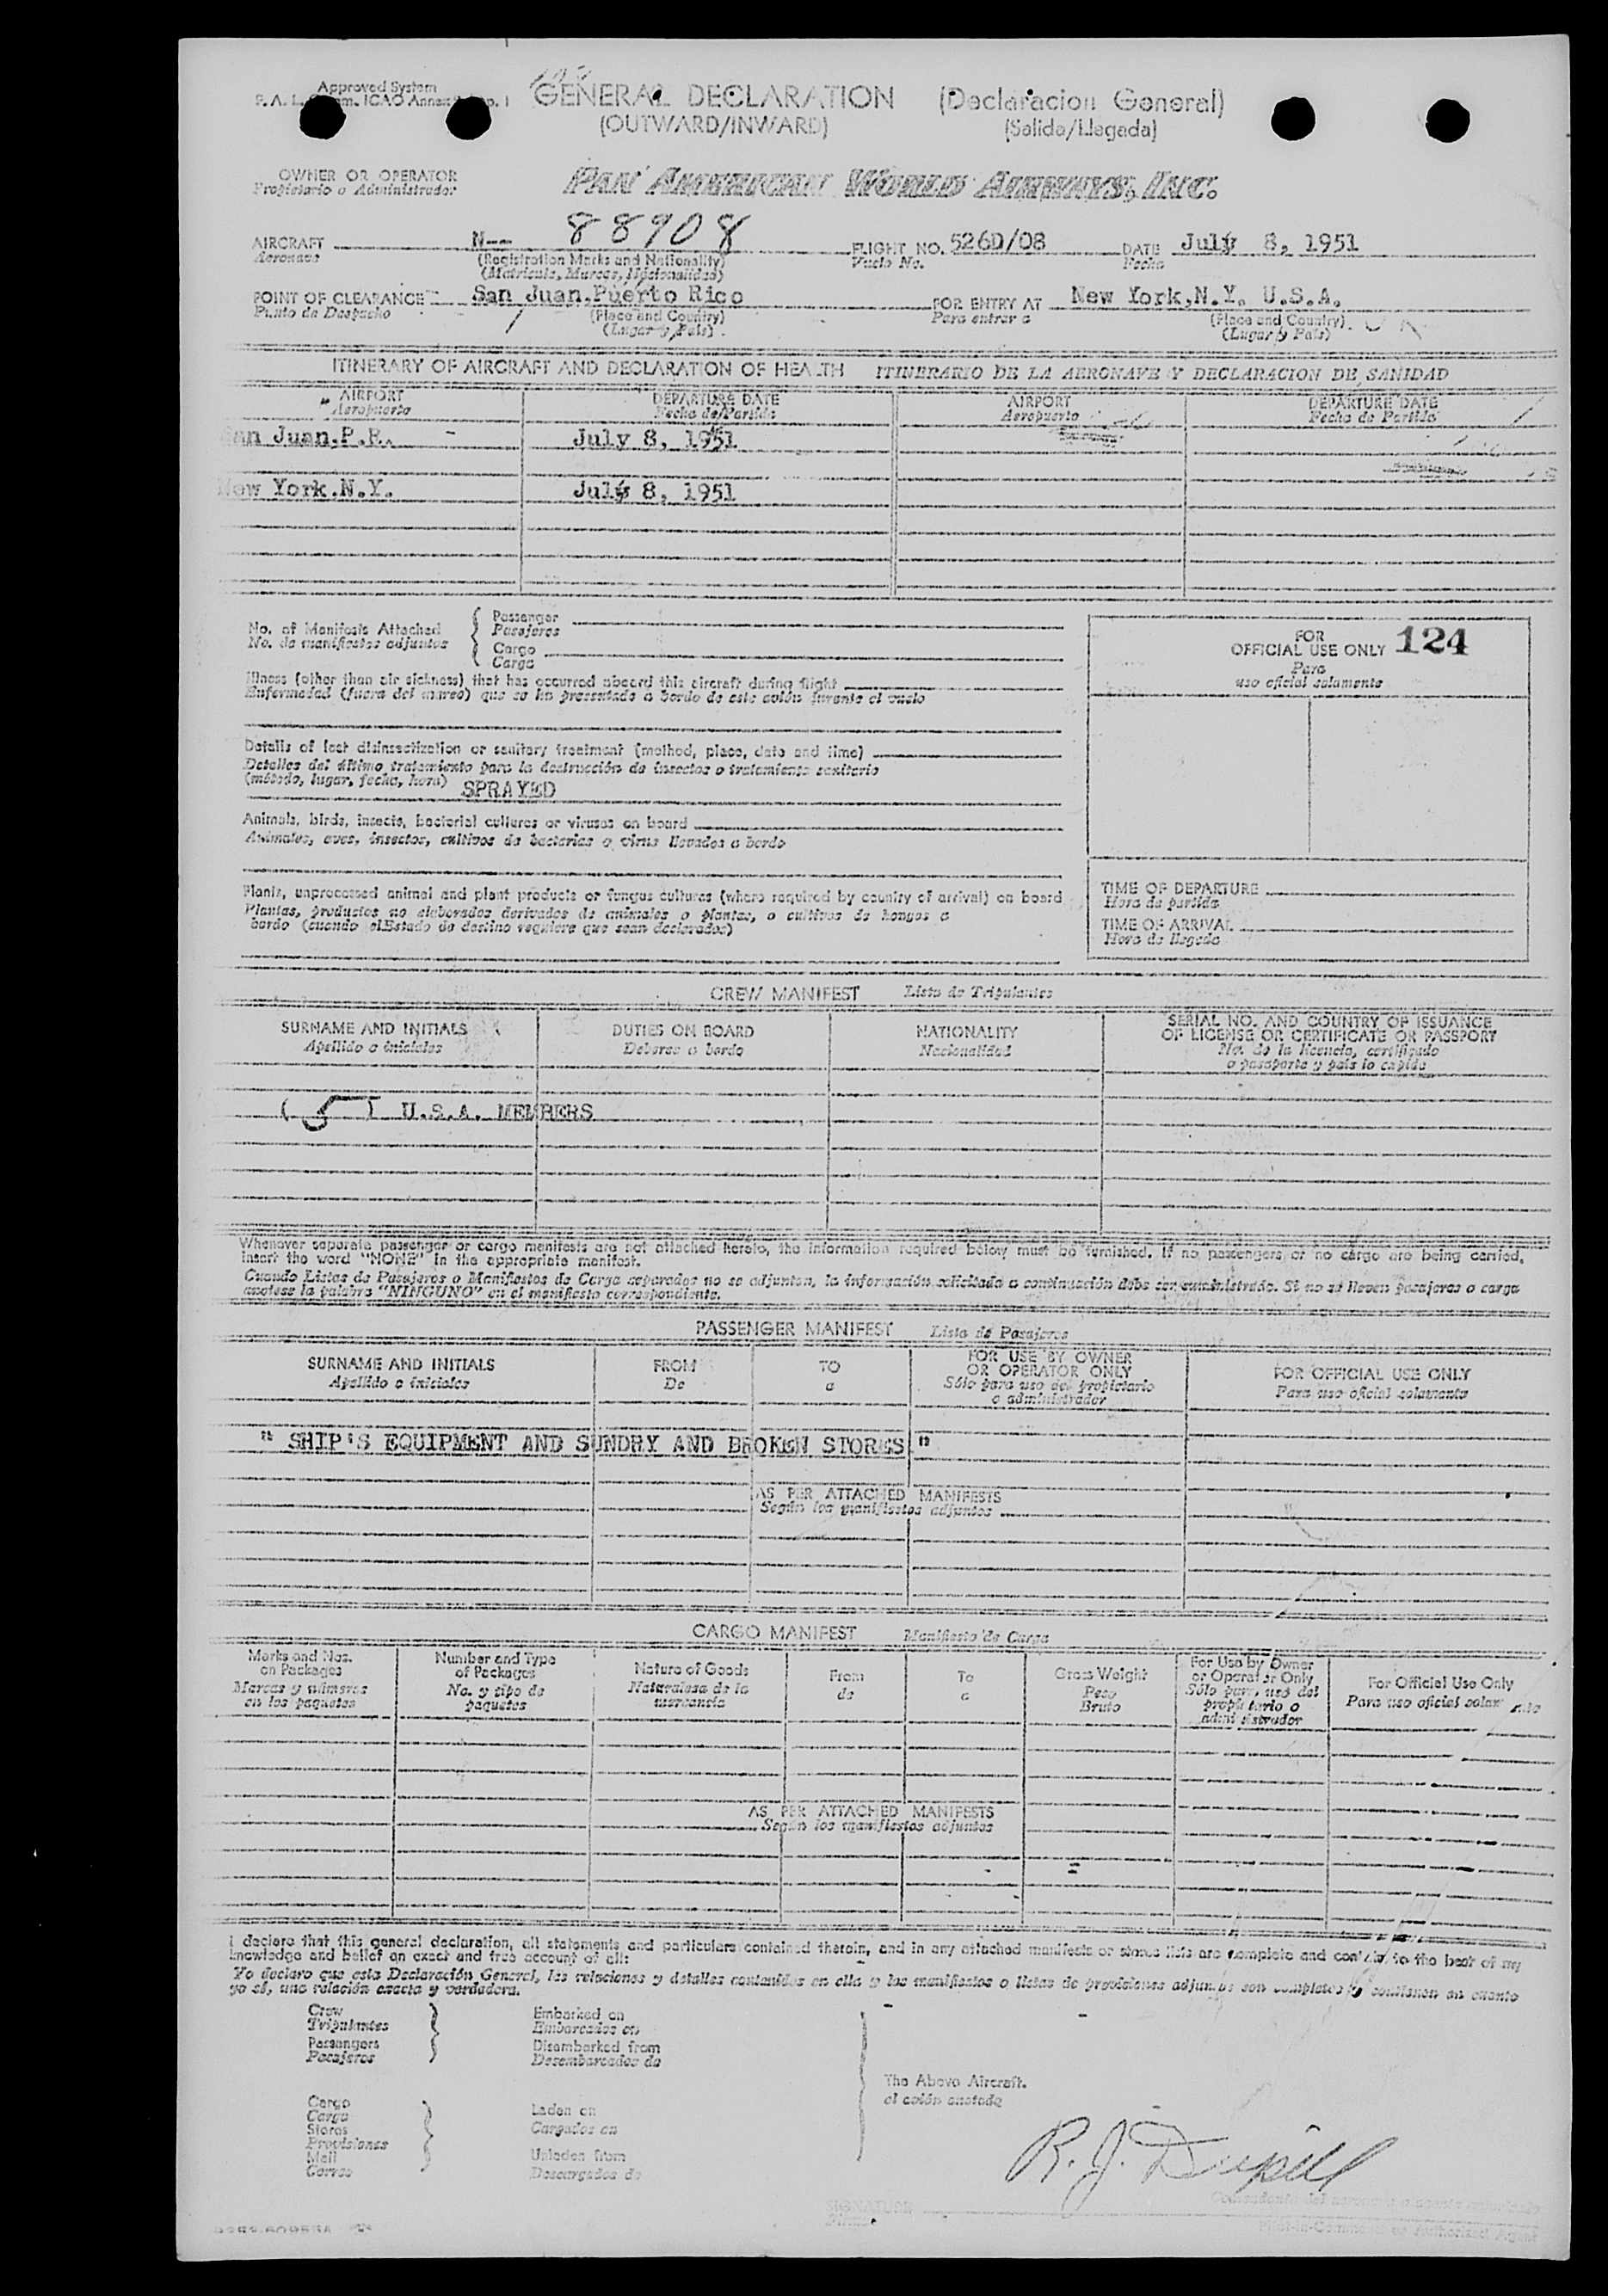 Approved System
GENERAL DECLARATION (Declaracion General)
(OUTWARD/INWARD) (Salida/Llegada)
OWNER OR OPERATOR PAN AMERICAN WORLD AIRWAYS, INC.
Propietario o Administrador
AIRCRAFT N-- 88908 FLIGHT NO. 526D/08 DATE July 8, 1951
Aeronave (Registration Marks and Nationality) Vuelo No. Fecha
(Matricula, Marcas, Nacionalidad)
POINT OF CLEARANCE San Juan,Puerto Rico FOR ENTRY AT New York,N.Y. U.S.A.
Punto de Despacho (Place and Country) Para entrar a (Place and Country)
(Lugar y País) (Lugar y País)
ITINERARY OF AIRCRAFT AND DECLARATION OF HEALTH ITINERARIO DE LA AERONAVE Y DECLARACION DE SANIDAD
AIRPORT DEPARTURE DATE AIRPORT DEPARTURE DATE
Aeropuerto Fecha de Partida Aeropuerto Fecha de Partida
San Juan,P.R. July 8, 1951
New York.N.Y. July 8, 1951
No. of Manifests Attached Passenger
No. de manifiestos adjuntos Pasajeros
Cargo
Carga
FOR
OFFICIAL USE ONLY 124
Para
uso oficial solamente
Illness (other than air sickness) that has occurred aboard this aircraft during flight
Enfermedad (fuera del mareo) que se ha presentado a bordo de este avión durante el vuelo
Details of last disinsectization or sanitary treatment (method, place, date and time)
Detalles del último tratamiento para la destrucción de insectos o tratamiento sanitario
(método, lugar, fecha, hora) SPRAYED
Animals, birds, insects, bacterial cultures or viruses on board
Animales, aves, insectos, cultivos de bacterias o virus llevados a bordo
Plants, unprocessed animal and plant products or fungus cultures (where required by country of arrival) on board
Plantas, productos no elaborados derivados de animales o plantas, o cultivos de hongos a
bordo (cuando el Estado de destino requiera que sean declarados)
TIME OF DEPARTURE
Hora de partida
TIME OF ARRIVAL
Hora de llegada
CREW MANIFEST Lista de Tripulantes
SURNAME AND INITIALS DUTIES ON BOARD NATIONALITY SERIAL NO. AND COUNTRY OF ISSUANCE
OF LICENSE OR CERTIFICATE OR PASSPORT
Apellido o iniciales Deberes a bordo Nacionalidad No. de la licencia, certificado
o pasaporte y país lo expide
( 5 ) U.S.A. MEMBERS
Whenever separate passenger or cargo manifests are not attached hereto, the information required below must be furnished. If no passengers or no cargo are being carried,
insert the word "NONE" in the appropriate manifest.
Cuando Listas de Pasajeros o Manifiestos de Carga separados no se adjunten, la información solicitada a continuación debe ser suministrada. Si no se lleven pasajeros o carga
anotese la palabra "NINGUNO" en el manifiesto correspondiente.
PASSENGER MANIFEST Lista de Pasajeros
SURNAME AND INITIALS FROM TO FOR USE BY OWNER
OR OPERATOR ONLY FOR OFFICIAL USE ONLY
Apellido o iniciales De a Sólo para uso del propietario
o administrador Para uso oficial solamente
" SHIP'S EQUIPMENT AND SUNDRY AND BROKEN STORES "
AS PER ATTACHED MANIFESTS
Según los manifiestos adjuntos
CARGO MANIFEST Manifiesto de Carga
Marks and Nos.
on Packages
Marcas y números
en los paquetes
Number and Type
of Packages
No. y tipo de
paquetes
Nature of Goods
Naturalesa de la
mercancia
From
de
To
a
Gross Weight
Peso
Bruto
For Use by Owner
or Operator Only
Sólo para uso del
propietario o
administrador
For Official Use Only
Para uso oficial solamente
AS PER ATTACHED MANIFESTS
Según los manifiestos adjuntos
I declare that this general declaration, all statements and particulars contained therein, and in any attached manifests or stores lists are complete and contain to the best of my
knowledge and belief an exact and true account of all:
Yo declaro que esta Declaración General, las relaciones y detalles contenidos en ella y los manifiestos o listas de provisiones adjuntas son completos y contienen en cuanto
yo sé, una relación exacta y verdadera.
Crew
Tripulantes
Passengers
Pasajeros
Embarked on
Embarcados en
Disembarked from
Desembarcados de
Cargo
Carga
Stores
Provisiones
Mail
Correo
Laden on
Cargados en
Unladen from
Descargados de
The Above Aircraft.
el avión anotado
SIGNATURE
Pilot-in-Command or Authorized Agent